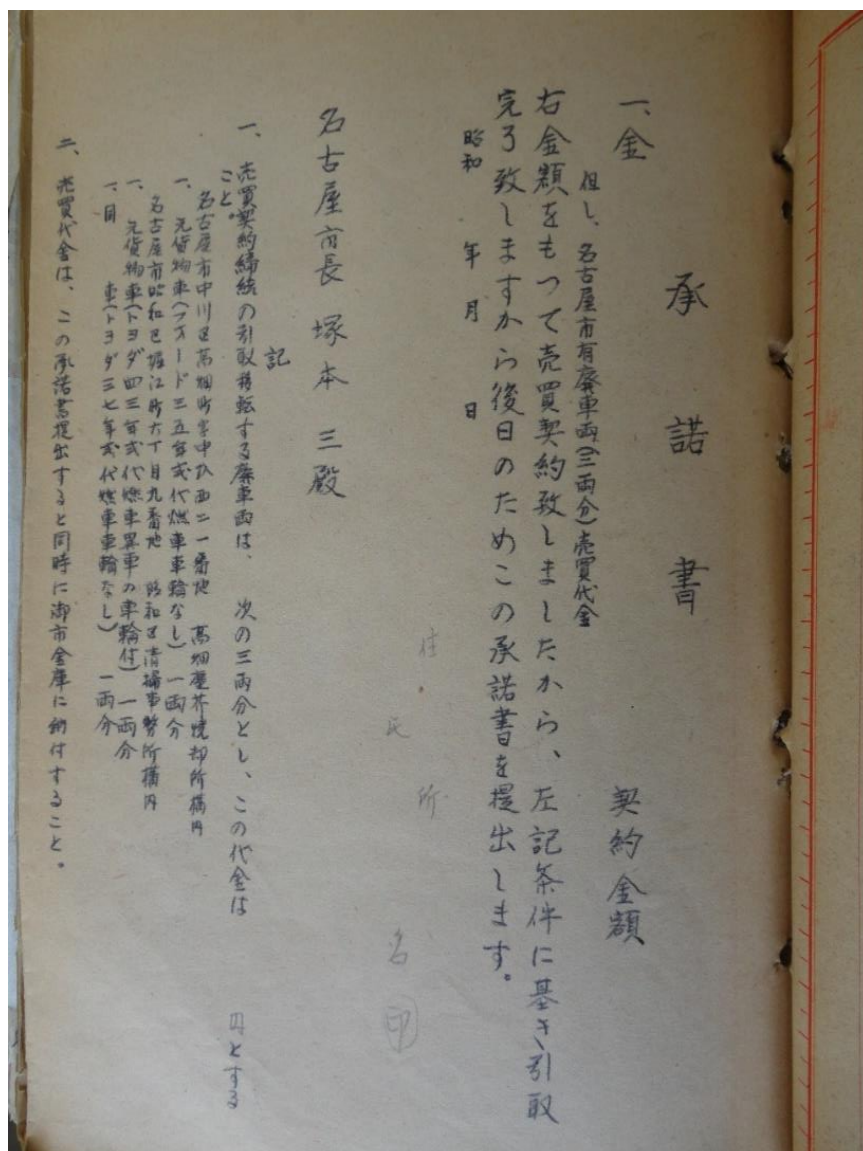 承諾書
一、金 契約金額
但し、名古屋市有廃車両(三両分)売買代金
右金額をもつて売買契約致しましたから、左記条件に基き引取
完了致しますから後日のためこの承諾書を提出します。
昭和 年 月 日
住所
氏名 印
名古屋市長 塚本三殿
記
一、売買契約締結の引取移転する廃車両は、次の三両分とし、この代金は 円とする
こと。
名古屋市中川区高畑町字中ひ西二一番地 高畑塵芥焼却所構内
一、元貨物車(フォード三五年式代燃車車輪なし)一両分
名古屋市昭和区堀江町六丁目九番地 昭和区清掃事務所構内
一、元貨物車(トヨダ四三年式代燃車異車の車輪付)一両分
一、同 車(トヨダ三七年式代燃車車輪なし)一両分
二、売買代金は、この承諾書提出すると同時に御市金庫に納付すること。